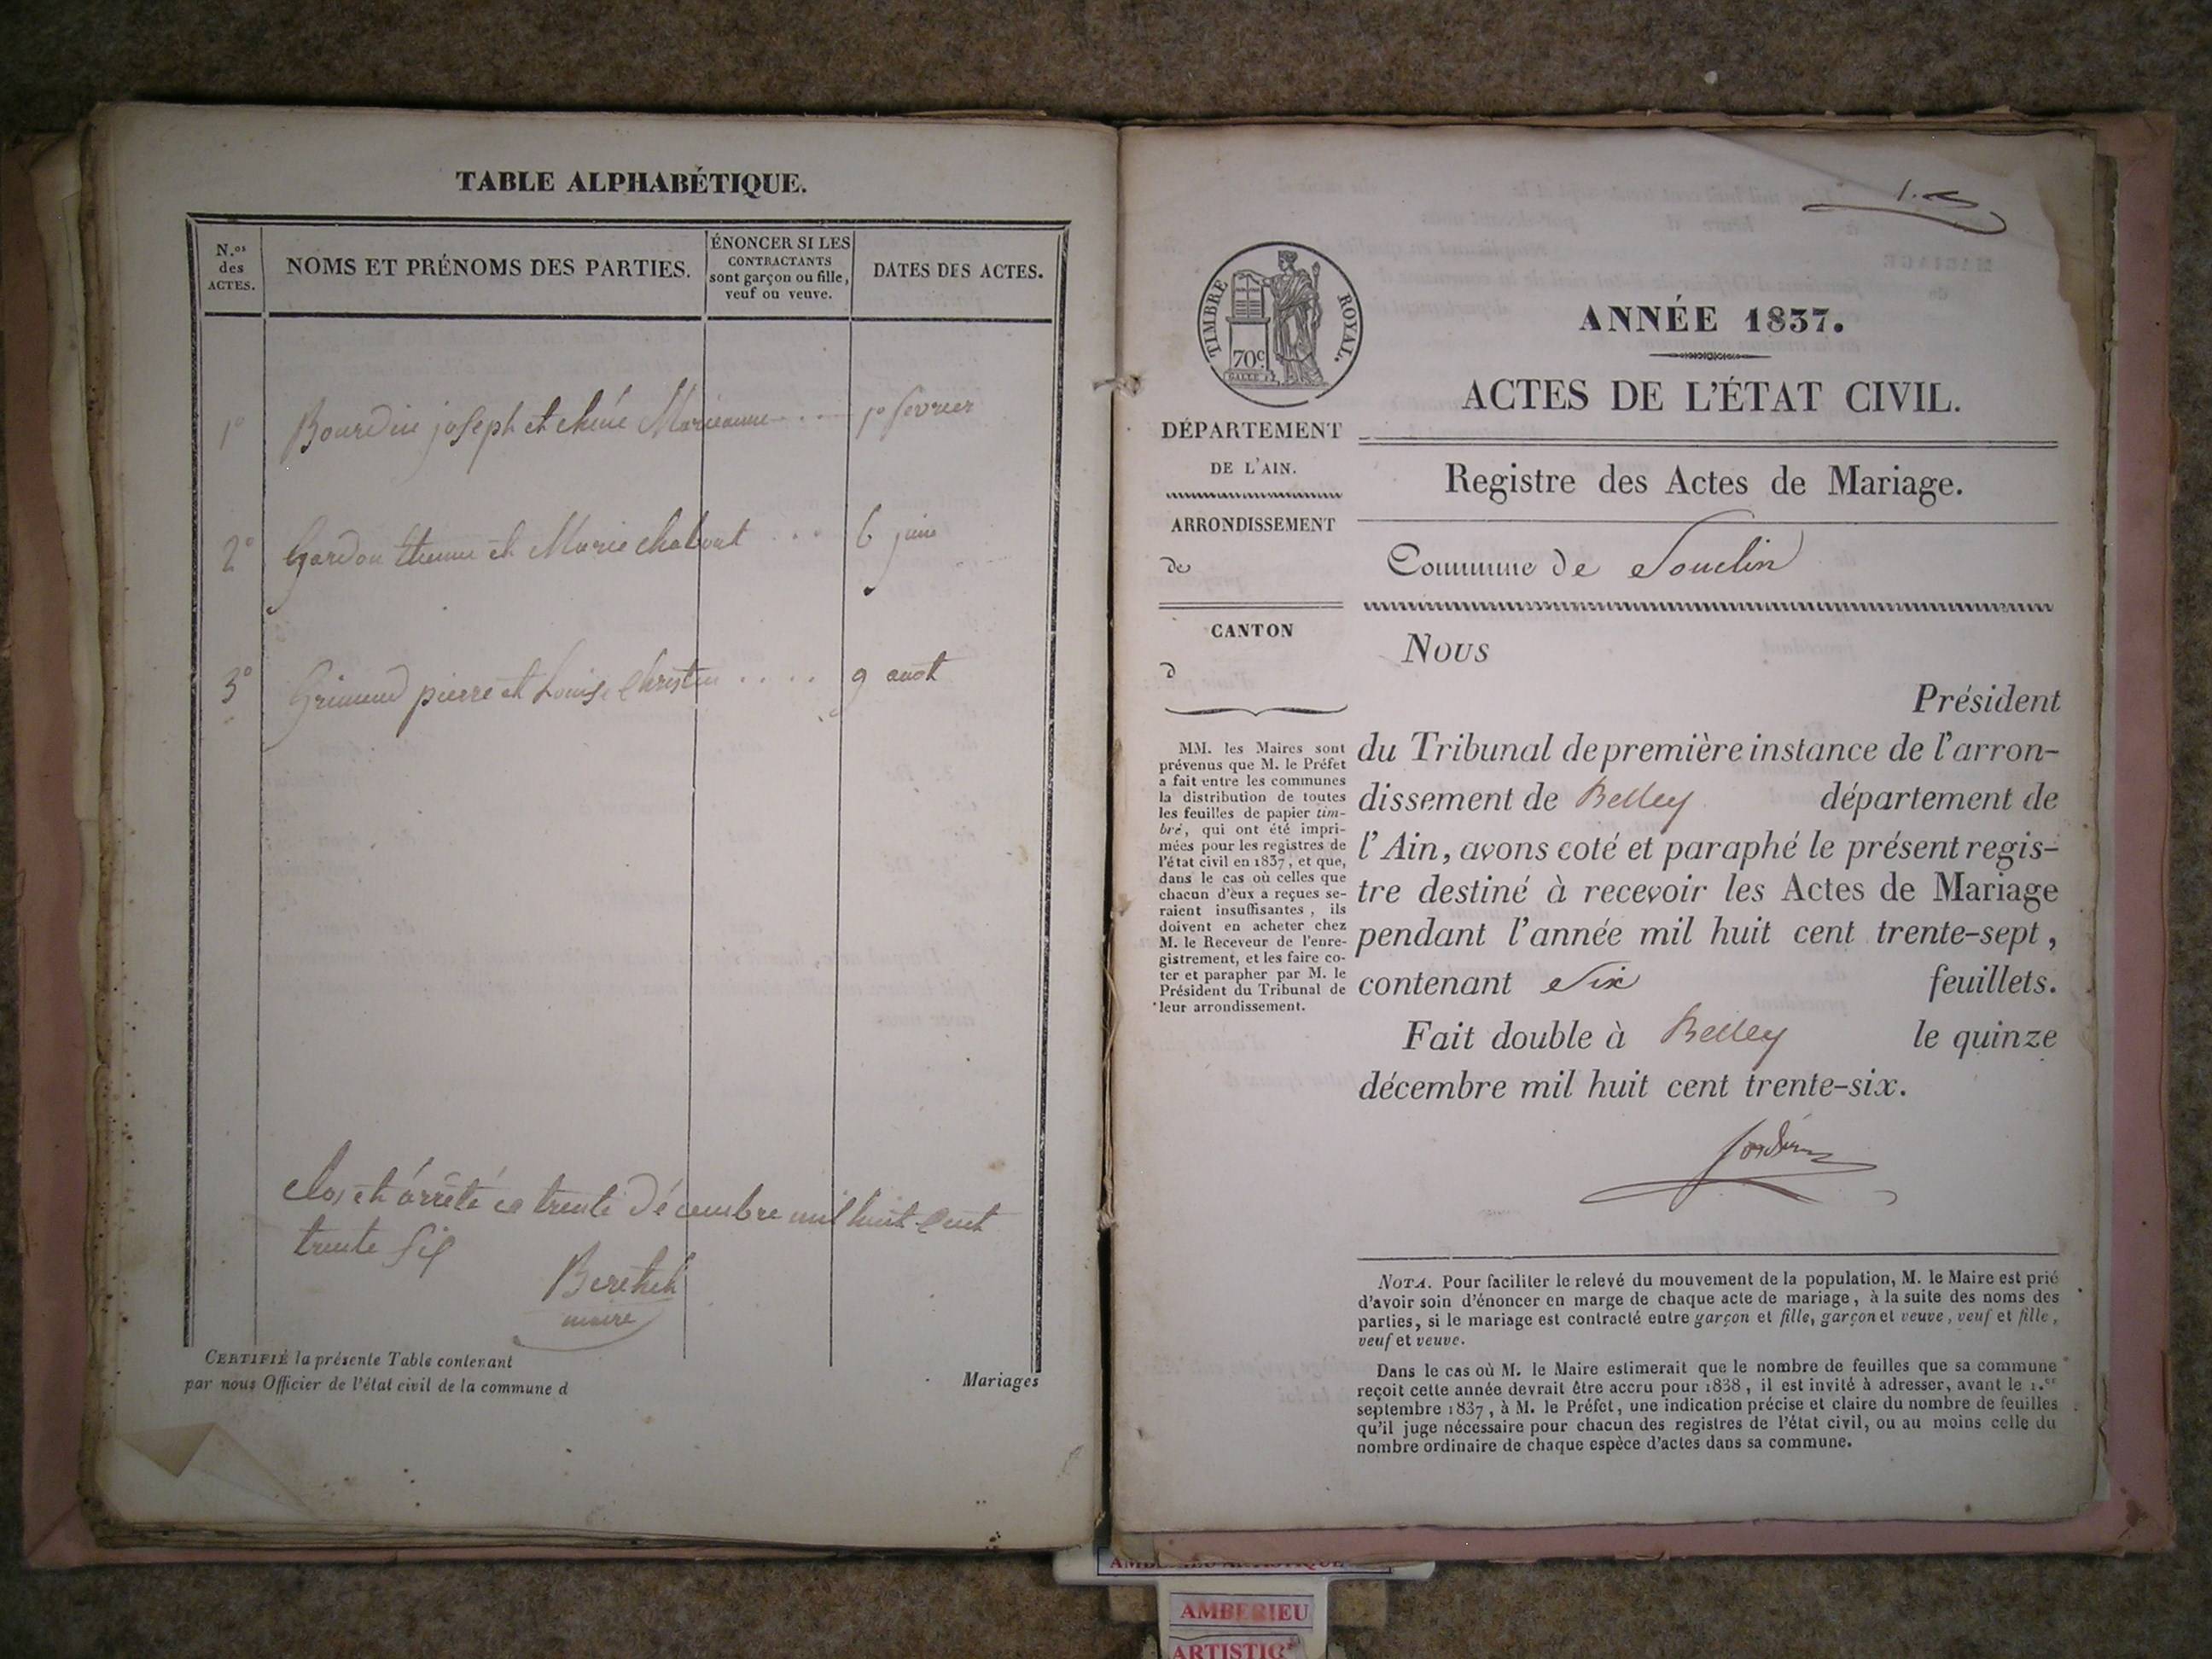 TABLE ALPHABÉTIQUE.
N.os des ACTES.
NOMS ET PRÉNOMS DES PARTIES.
ÉNONCER SI LES
CONTRACTANTS
sont garçon ou fille,
veuf ou veuve.
DATES DES ACTES.
1° Bourdin joseph et chéné Marieanne .... 1° fevrier
2° Gardon Etienne et Marie chabout ... 6 juin
3° Grimand pierre et Louise Christin .... 9 aout
clos et arrêté ce trente Décembre mil huit Cent
trente six
Berthet
maire
CERTIFIÉ la présente Table contenant
Mariages
par nous Officier de l'état civil de la commune d
1.
TIMBRE ROYAL.
70c
ANNÉE 1837.
ACTES DE L'ÉTAT CIVIL.
DÉPARTEMENT
DE L'AIN.
ARRONDISSEMENT
de
CANTON
d
MM. les Maires sont
prévenus que M. le Préfet
a fait entre les communes
la distribution de toutes
les feuilles de papier tim-
bré, qui ont été impri-
mées pour les registres de
l'état civil en 1837, et que,
dans le cas où celles que
chacun d'eux a reçues se-
raient insuffisantes, ils
doivent en acheter chez
M. le Receveur de l'enre-
gistrement, et les faire co-
ter et parapher par M. le
Président du Tribunal de
leur arrondissement.
Registre des Actes de Mariage.
Commune de Souclin
Nous
Président
du Tribunal de première instance de l'arron-
dissement de Belley département de
l'Ain, avons coté et paraphé le présent regis-
tre destiné à recevoir les Actes de Mariage
pendant l'année mil huit cent trente-sept,
contenant Six feuillets.
Fait double à Belley le quinze
décembre mil huit cent trente-six.
NOTA. Pour faciliter le relevé du mouvement de la population, M. le Maire est prié
d'avoir soin d'énoncer en marge de chaque acte de mariage, à la suite des noms des
parties, si le mariage est contracté entre garçon et fille, garçon et veuve, veuf et fille,
veuf et veuve.
Dans le cas où M. le Maire estimerait que le nombre de feuilles que sa commune
reçoit cette année devrait être accru pour 1838, il est invité à adresser, avant le 1.er
septembre 1837, à M. le Préfet, une indication précise et claire du nombre de feuilles
qu'il juge nécessaire pour chacun des registres de l'état civil, ou au moins celle du
nombre ordinaire de chaque espèce d'actes dans sa commune.
AMBERIEU